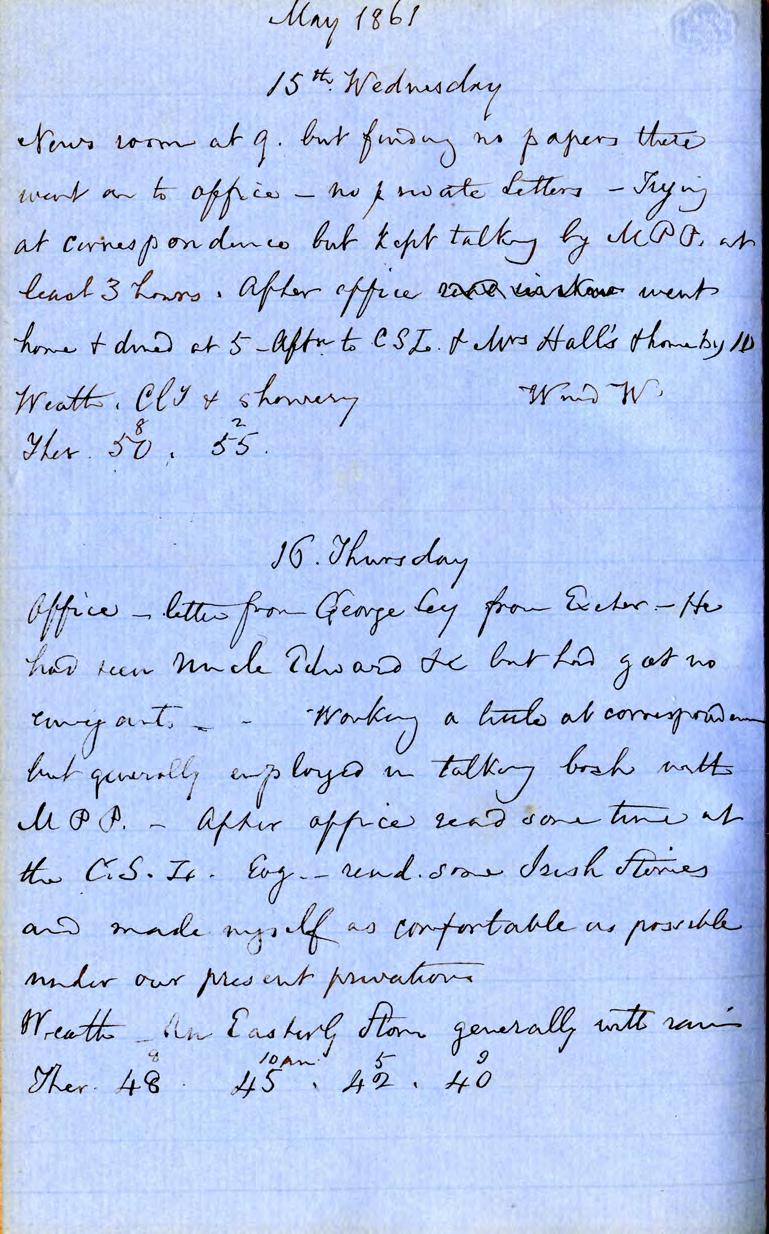 May 1861
15th Wednesday
News room at 9. but finding no papers there
went on to office – no private letters – Trying
at correspondence but kept talking by M P P. at
least 3 hours. After office went
home & dined at 5 – Aftn to C S L. & Mrs Hall's & home by 10
Weath. Cly & showery Wind W.
8 2
Ther. 50. 55.
16. Thursday
Office – letter from George from Exeter – He
had seen Uncle Edward &c but had got no
– – Working a little at corresponden
but generally employed in talking bosh with
M P P. – After office read some time at
the C. S. L. Evg. – read some Irish Stories
and made myself as comfortable as possible
under our present privations
Weath – An Easterly Storm generally with rain
8 10 am 5 9
Ther. 48. 45. 42. 40